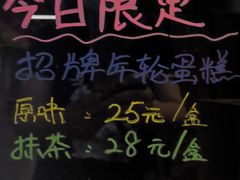 今日限定
招牌年轮蛋糕
原味：25元/盒
抹茶：28元/盒